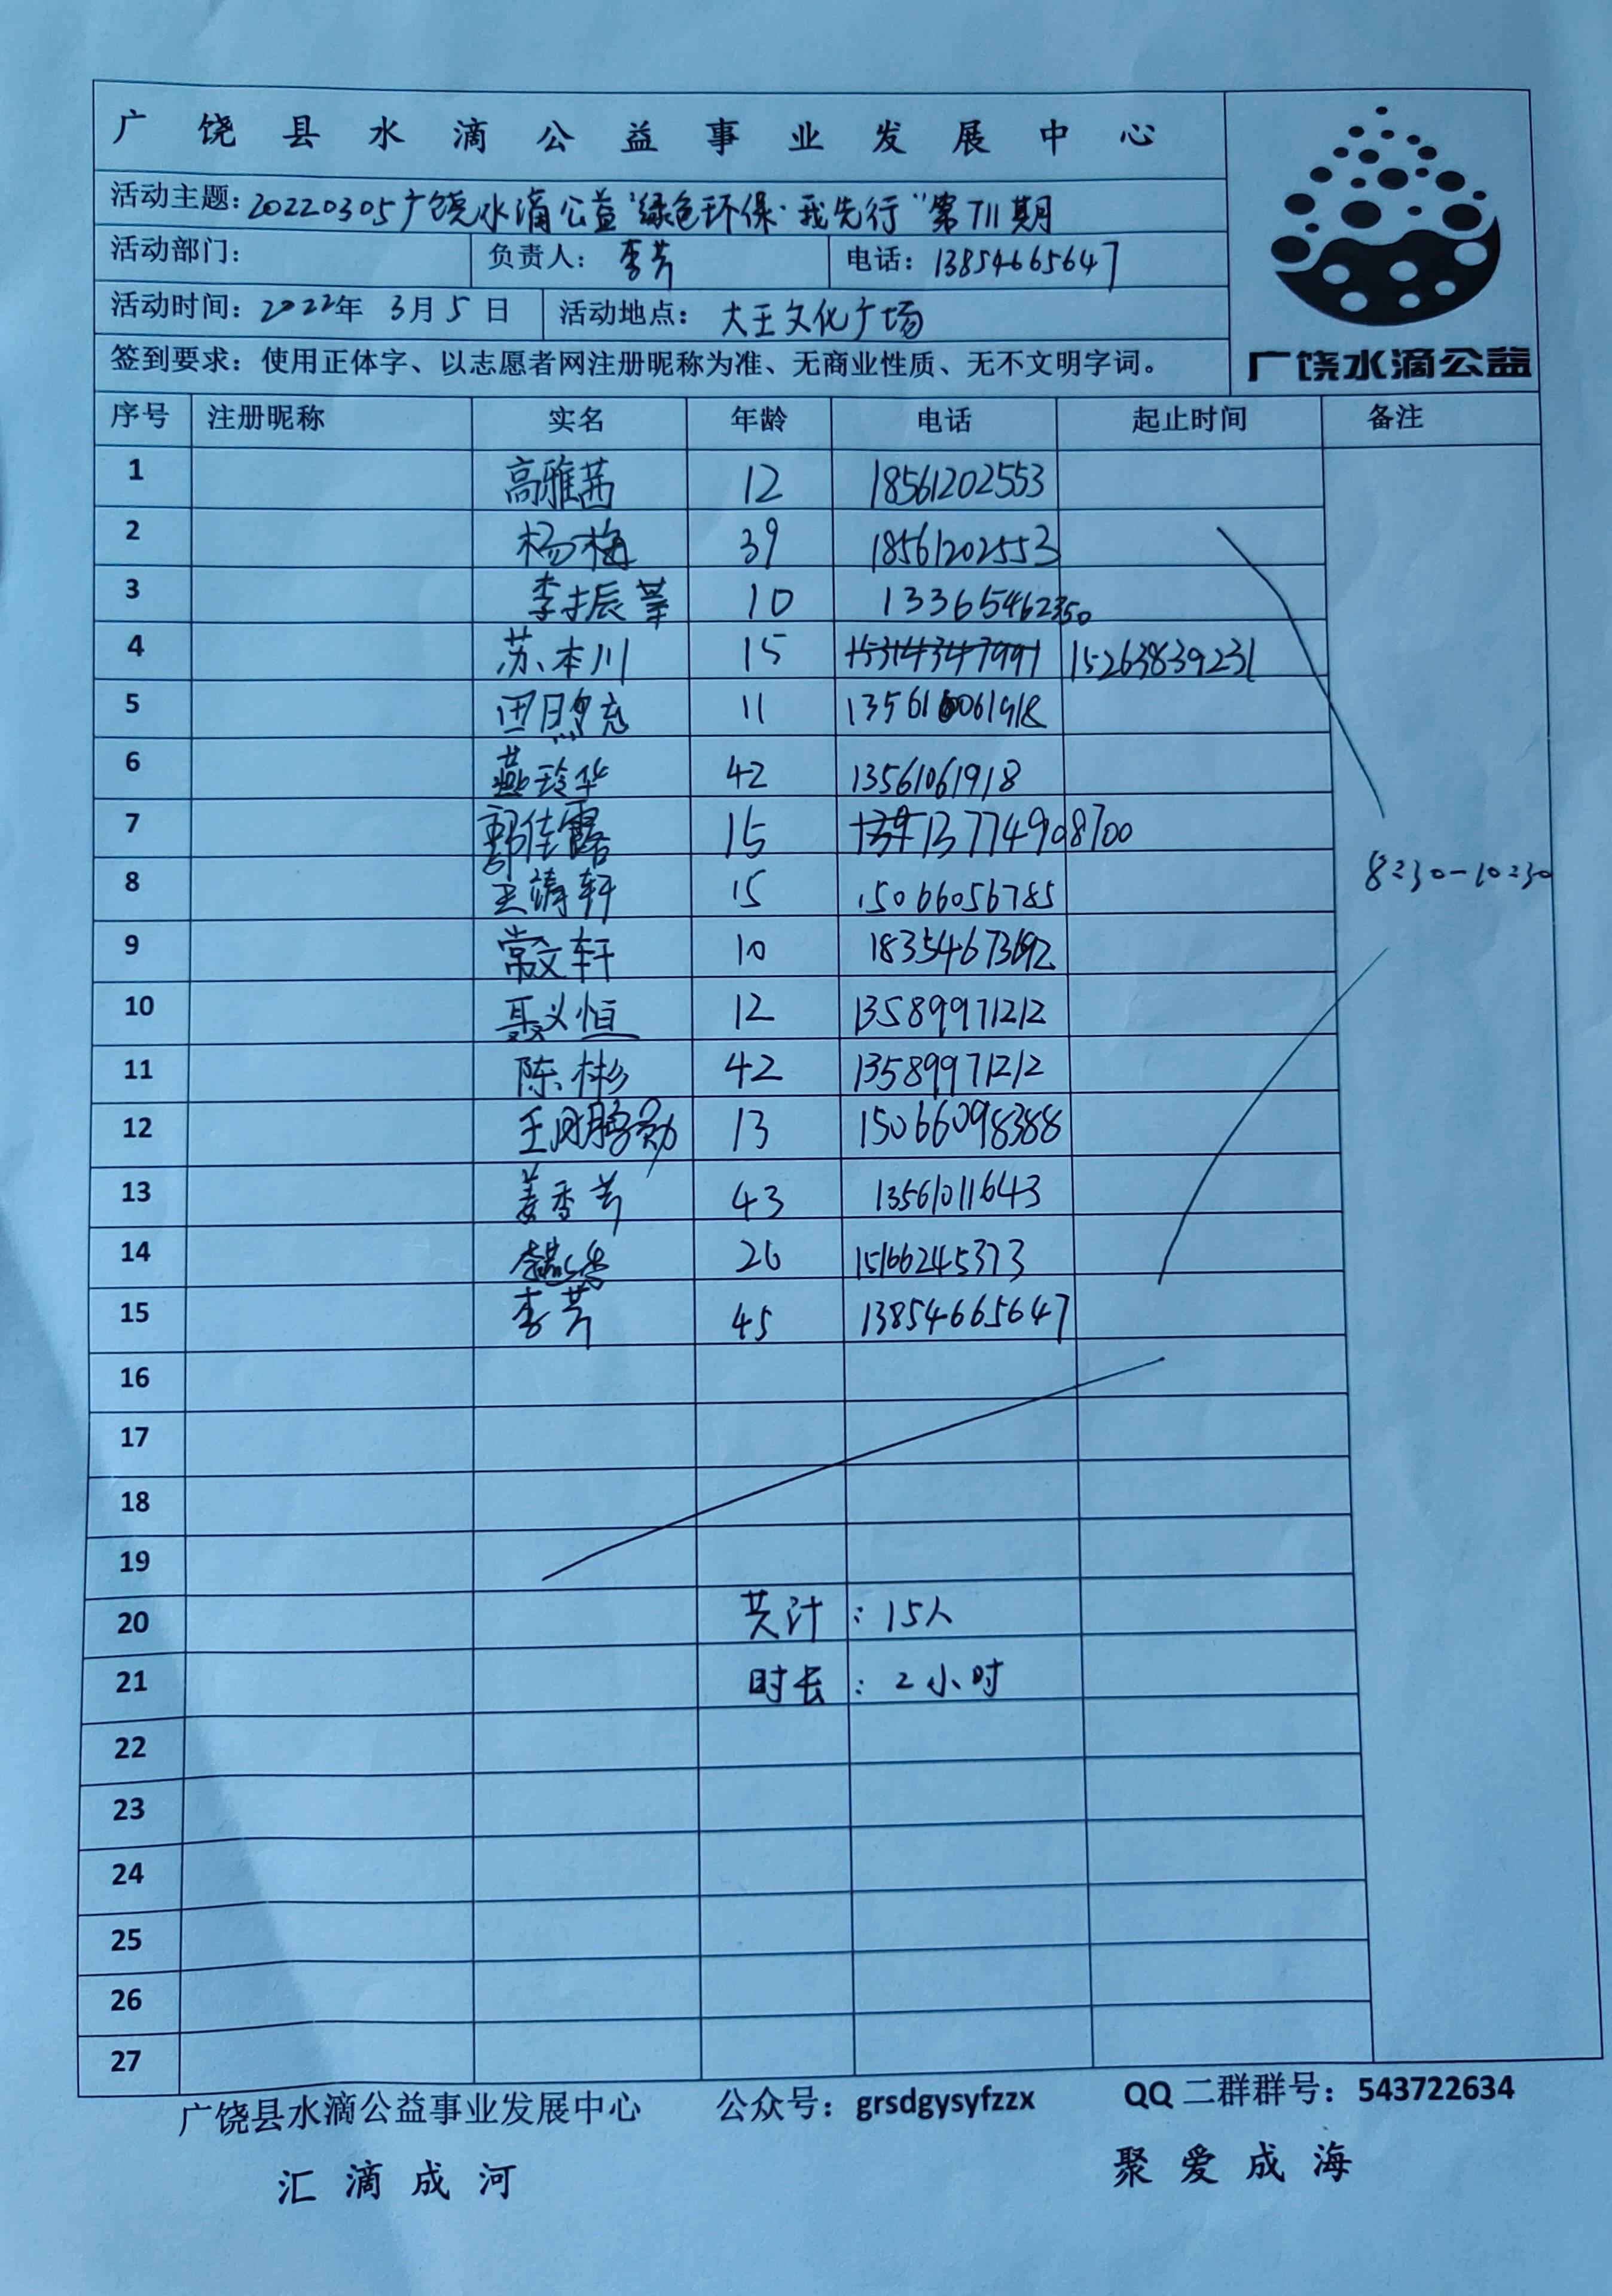 广饶县水滴公益事业发展中心
活动主题：20220305广饶水滴公益"绿色环保·我先行"第711期
活动部门： 负责人：李芳 电话：13854665647
活动时间：2022年 3月5日 活动地点：大王文化广场
签到要求：使用正体字、以志愿者网注册昵称为准、无商业性质、无不文明字词。
广饶水滴公益
序号 注册昵称 实名 年龄 电话 起止时间 备注
1 高雅茜 12 18561202553
2 杨梅 39 18561202553
3 李振 10 13365462350
4 苏本川 15 15314347991 15263839231
5 田照充 11 1356106061918
6 燕玲华 42 13561061918
7 郭佳露 15 13774908700
8 王靖轩 15 15066056785
8:30-10:30
9 常文轩 10 18354673692
10 聂义恒 12 13589971212
11 陈彬 42 13589971212
12 王 13 15066098388
13 姜香芳 43 13561011643
14 26 15166245373
15 李芳 45 13854665647
16
17
18
19
20 共计：15人
21 时长：2小时
22
23
24
25
26
27
广饶县水滴公益事业发展中心 公众号：grsdgysyfzzx QQ二群群号：543722634
汇滴成河 聚爱成海